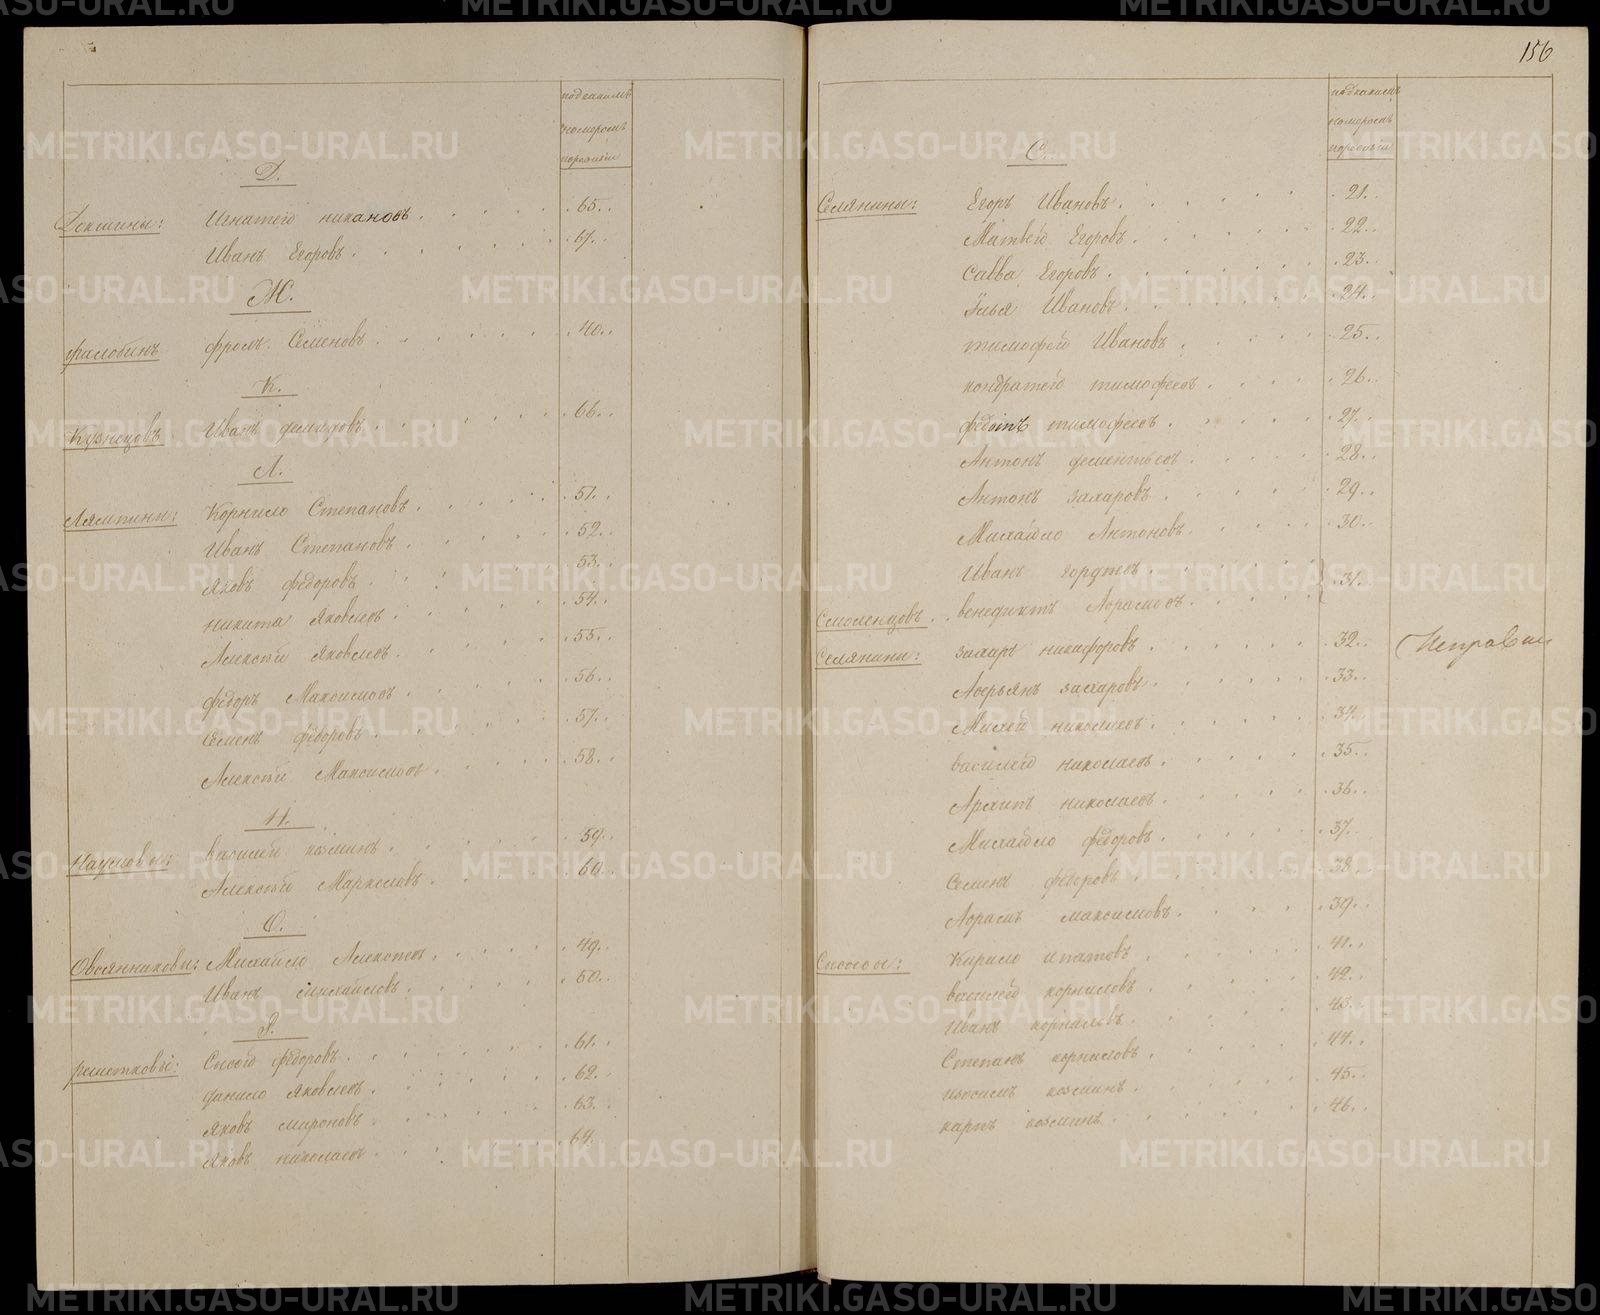 подкакимъ
номеромъ
поревизiи
Д.
Декшины: Игнатей никановъ . . . . . 65. .
Иванъ Егоровъ . . . . . . 67. .
Ж.
фроlъ Семеновъ . . . . . 40. .
К.
Кузнецовъ Иванъ . . . . . 66. .
Л.
Лямпины: Корнило Степановъ . . . . 57. .
Иванъ Степановъ . . . . . 52. .
яковъ федоровъ . . . . . 53. .
никита яковлевъ . . . . . 54. .
Алексѣй яковлевъ . . . . . 55. .
федоръ Максимовъ . . . . . 56. .
семенъ федоровъ . . . . . 57. .
Алексѣй Максимовъ . . . . . 58. .
Н.
Наумовы: василей козминъ . . . . . 59. .
Алексѣй Маркеловъ . . . . . 60. .
О.
Овсянниковы: Михайло Алексѣев . . . . . 49. .
Иванъ михайловъ . . . . . 50. .
Р.
решетковы: Сысой федоровъ . . . . . 61. .
данило яковлевъ . . . . . 62. .
яковъ мироновъ . . . . . 63. .
яковъ николаевъ . . . . . 64. .
156
подкакимъ
номеромъ
поревизiи
С.
Селянины: Егоръ Ивановъ . . . . . 21. .
Матвей Егоровъ . . . . . 22. .
савва Егоровъ . . . . . 23. .
Илья Ивановъ . . . . . 24. .
тимофей Ивановъ . . . . . 25. .
кондратей тимофеевъ . . . . . 26. .
федотъ тимофеевъ . . . . . 27. .
Антонъ дементьевъ . . . . . 28. .
Антонъ захаровъ . . . . . 29. .
Михайло Антоновъ . . . . . 30. .
Иванъ . . . . . 31. .
Смоленцовъ . . венедиктъ Абрамовъ . . . . .
Селянины: захаръ никифоровъ . . . . . 32. .
Аверьянъ захаровъ . . . . . 33. .
Михей николаевъ . . . . . 34. .
василей николаевъ . . . . . 35. .
Архипъ николаевъ . . . . . 36. .
Михайло федоровъ . . . . . 37. .
Семенъ федоровъ . . . . . 38. .
Абрамъ максимовъ . . . . . 39. .
Сысоевы: Кирило ипатовъ . . . . . 41. .
василей корниловъ . . . . . 42. .
Иванъ корниловъ . . . . . 43. .
Степанъ корниловъ . . . . . 44. .
изосимъ козминъ . . . . . 45. .
карпъ козминъ . . . . . 46. .
METRIKI.GASO-URAL.RU